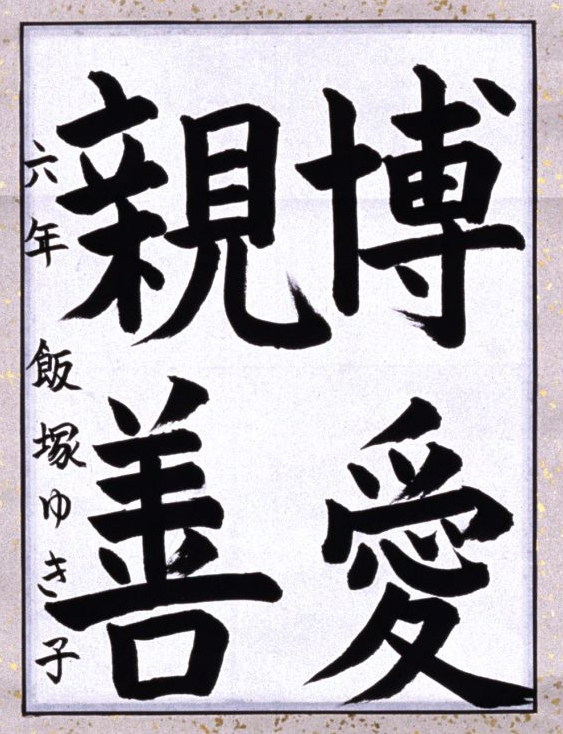 博愛
親善
六年 飯塚ゆき子